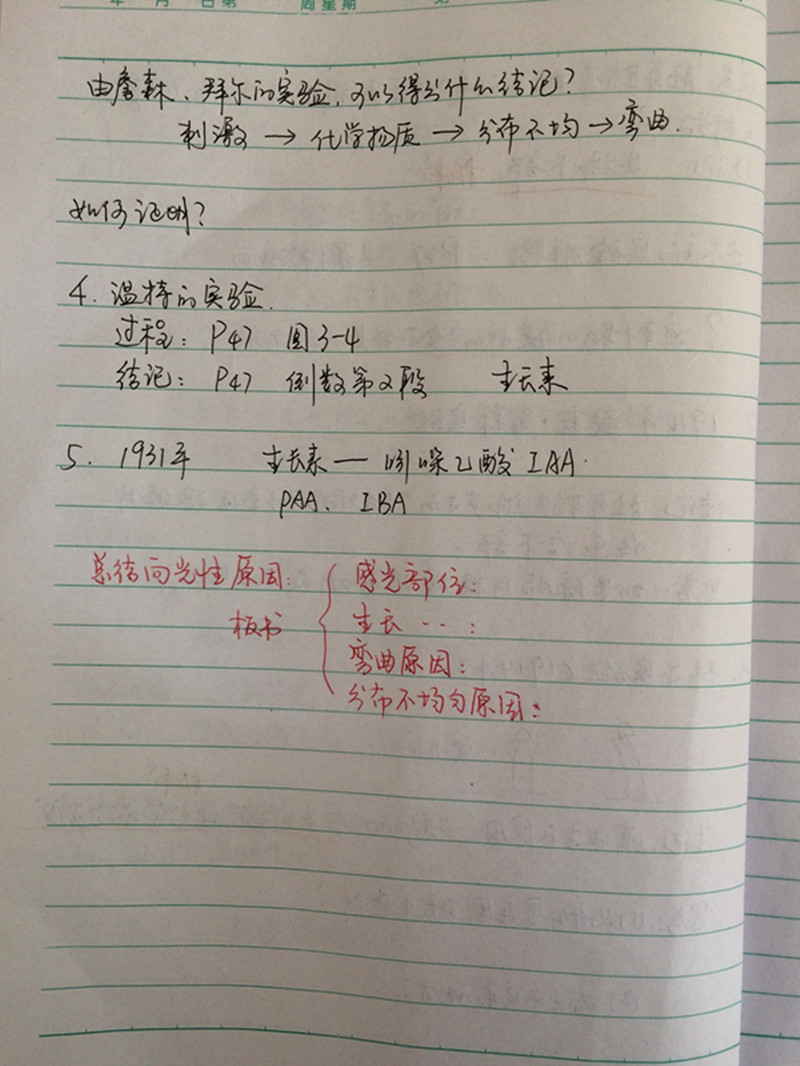 年 月 日第 周星期 第
由詹森、拜尔的实验,可以得出什么结论?
刺激 → 化学物质 → 分布不均 → 弯曲.
如何证明?
4. 温特的实验.
过程: P47 图3-4
结论: P47 倒数第2段 生长素
5. 1931年 生长素 — 吲哚乙酸 IAA.
PAA. IBA
总结向光性原因: 感光部位:
板书 生长 ‥ :
弯曲原因:
分布不均匀原因: